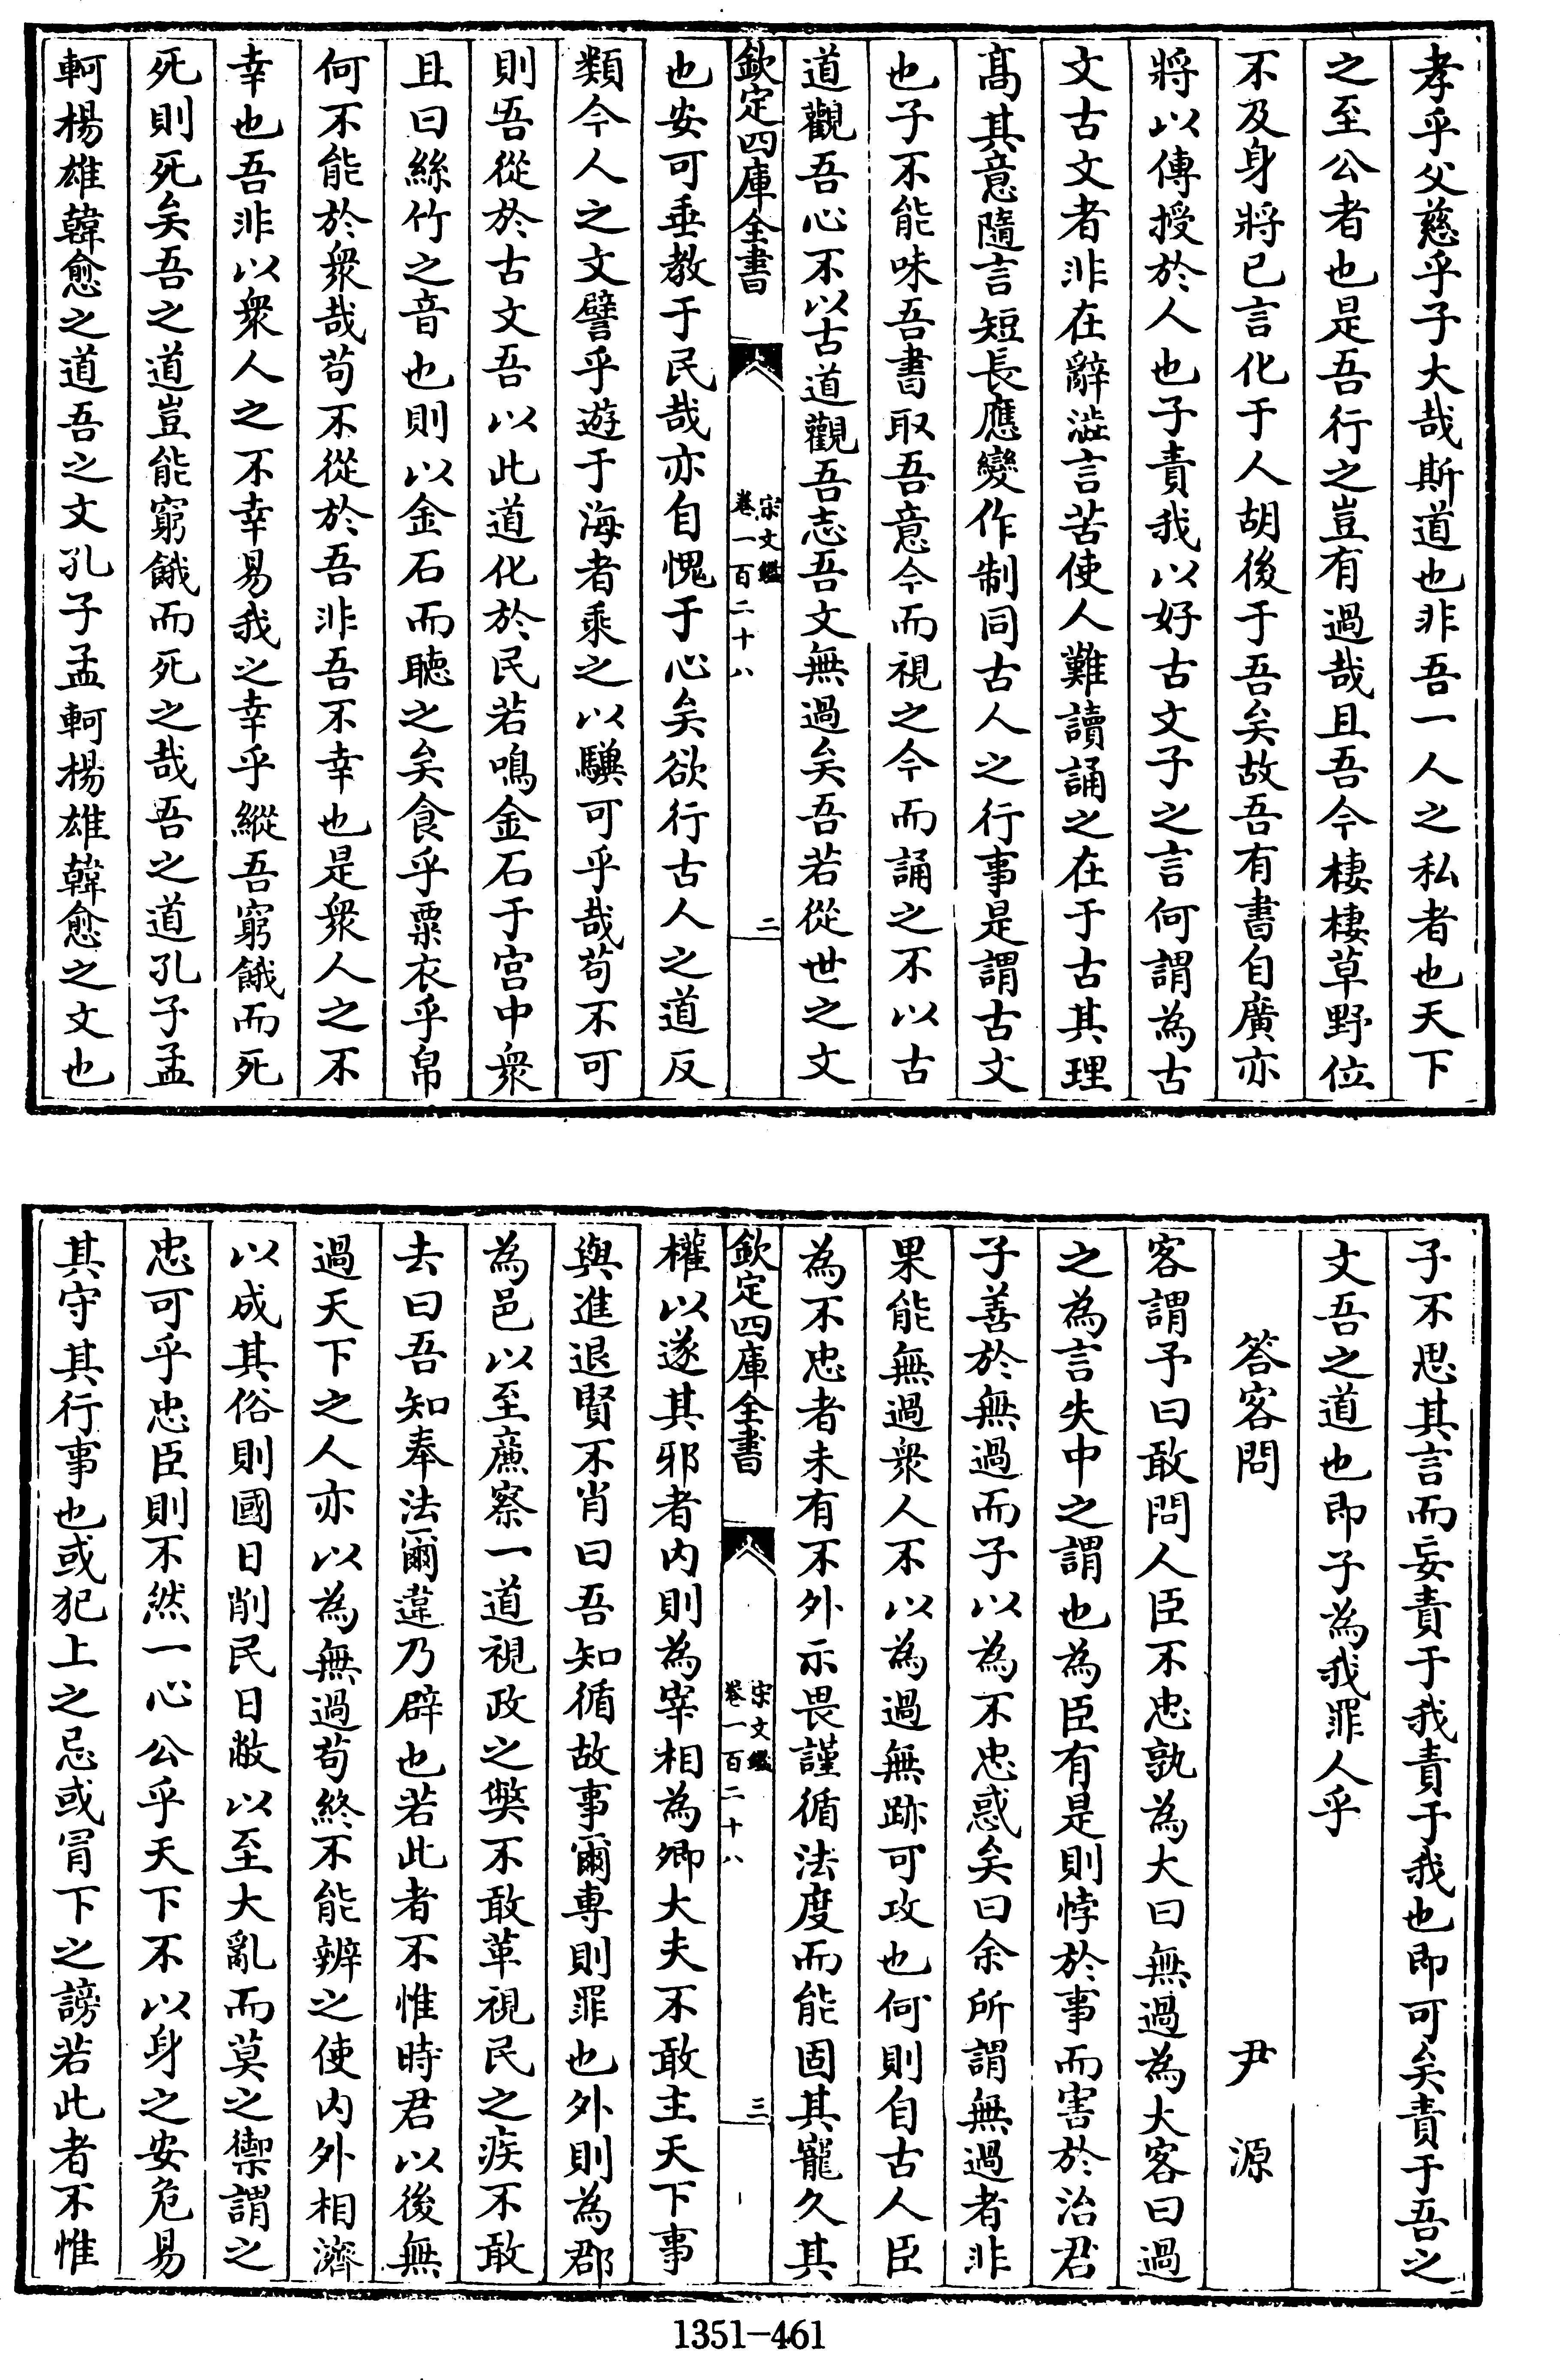 孝乎父慈乎子大哉斯道也非吾一人之私者也天下
之至公者也是吾行之豈有過哉且吾今棲棲草野位
不及身將已言化于人胡後于吾矣故吾有書自廣亦
將以傳授於人也子責我以好古文子之言何謂為古
文古文者非在辭澁言苦使人難讀誦之在于古其理
高其意隨言短長應變作制同古人之行事是謂古文
也子不能味吾書取吾意今而視之今而誦之不以古
道觀吾心不以古道觀吾志吾文無過矣吾若從世之文
欽定四庫全書
宋文鑑
卷一百二十八
二
也安可垂教于民哉亦自愧于心矣欲行古人之道反
類今人之文譬乎遊于海者乘之以驥可乎哉苟不可
則吾從於古文吾以此道化於民若鳴金石于宮中衆
且曰絲竹之音也則以金石而聽之矣食乎粟衣乎帛
何不能於衆哉苟不從於吾非吾不幸也是衆人之不
幸也吾非以衆人之不幸易我之幸乎縱吾窮餓而死
死則死矣吾之道豈能窮餓而死之哉吾之道孔子孟
軻楊雄韓愈之道吾之文孔子孟軻楊雄韓愈之文也
子不思其言而妄責于我責于我也即可矣責于吾之
文吾之道也即子為我罪人乎
答客問 尹源
客謂予曰敢問人臣不忠孰為大曰無過為大客曰過
之為言失中之謂也為臣有是則悖於事而害於治君
子善於無過而子以為不忠惑矣曰余所謂無過者非
果能無過衆人不以為過無跡可攻也何則自古人臣
為不忠者未有不外示畏謹循法度而能固其寵久其
欽定四庫全書
宋文鑑
卷一百二十八
三
權以遂其邪者内則為宰相為卿大夫不敢主天下事
與進退賢不肖曰吾知循故事爾專則罪也外則為郡
為邑以至廉察一道視政之獘不敢革視民之疾不敢
去曰吾知奉法爾違乃辟也若此者不惟時君以後無
過天下之人亦以為無過苟終不能辨之使内外相濟
以成其俗則國日削民日敝以至大亂而莫之禦謂之
忠可乎忠臣則不然一心公乎天下不以身之安危易
其守其行事也或犯上之忌或冒下之謗若此者不惟
1351-461